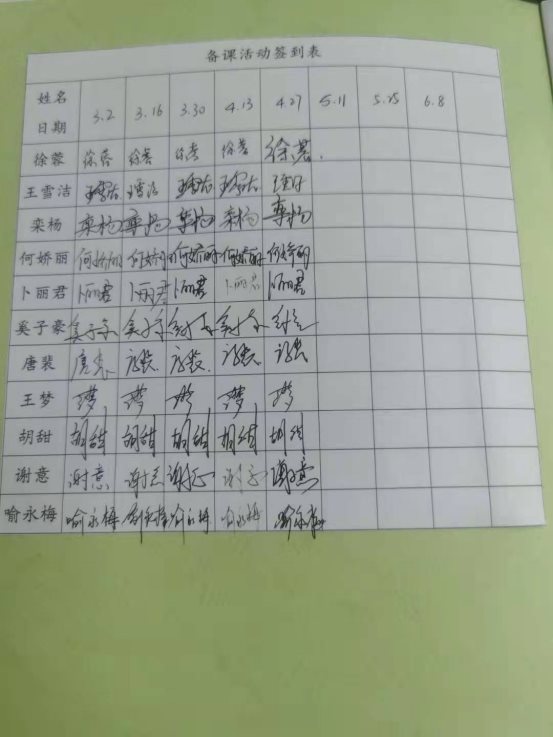 备课活动签到表
姓名
日期 3.2 3.16 3.30 4.13 4.27 5.11 5.25 6.8
徐蓉 徐蓉 徐蓉 徐蓉 徐蓉 徐蓉
王雪洁 王雪洁 王雪洁 王雪洁 王雪洁
栾杨 栾杨 栾杨 栾杨 栾杨 栾杨
何娇丽 何娇丽 何娇丽 何娇丽 何娇丽 何娇丽
卜丽君 卜丽君 卜丽君 卜丽君 卜丽君 卜丽君
奚子豪
唐裴 唐裴
王梦
胡甜 胡甜 胡甜 胡甜 胡甜 胡甜
谢意 谢意 谢意 谢意 谢意 谢意
喻永梅 喻永梅 喻永梅 喻永梅 喻永梅 喻永梅